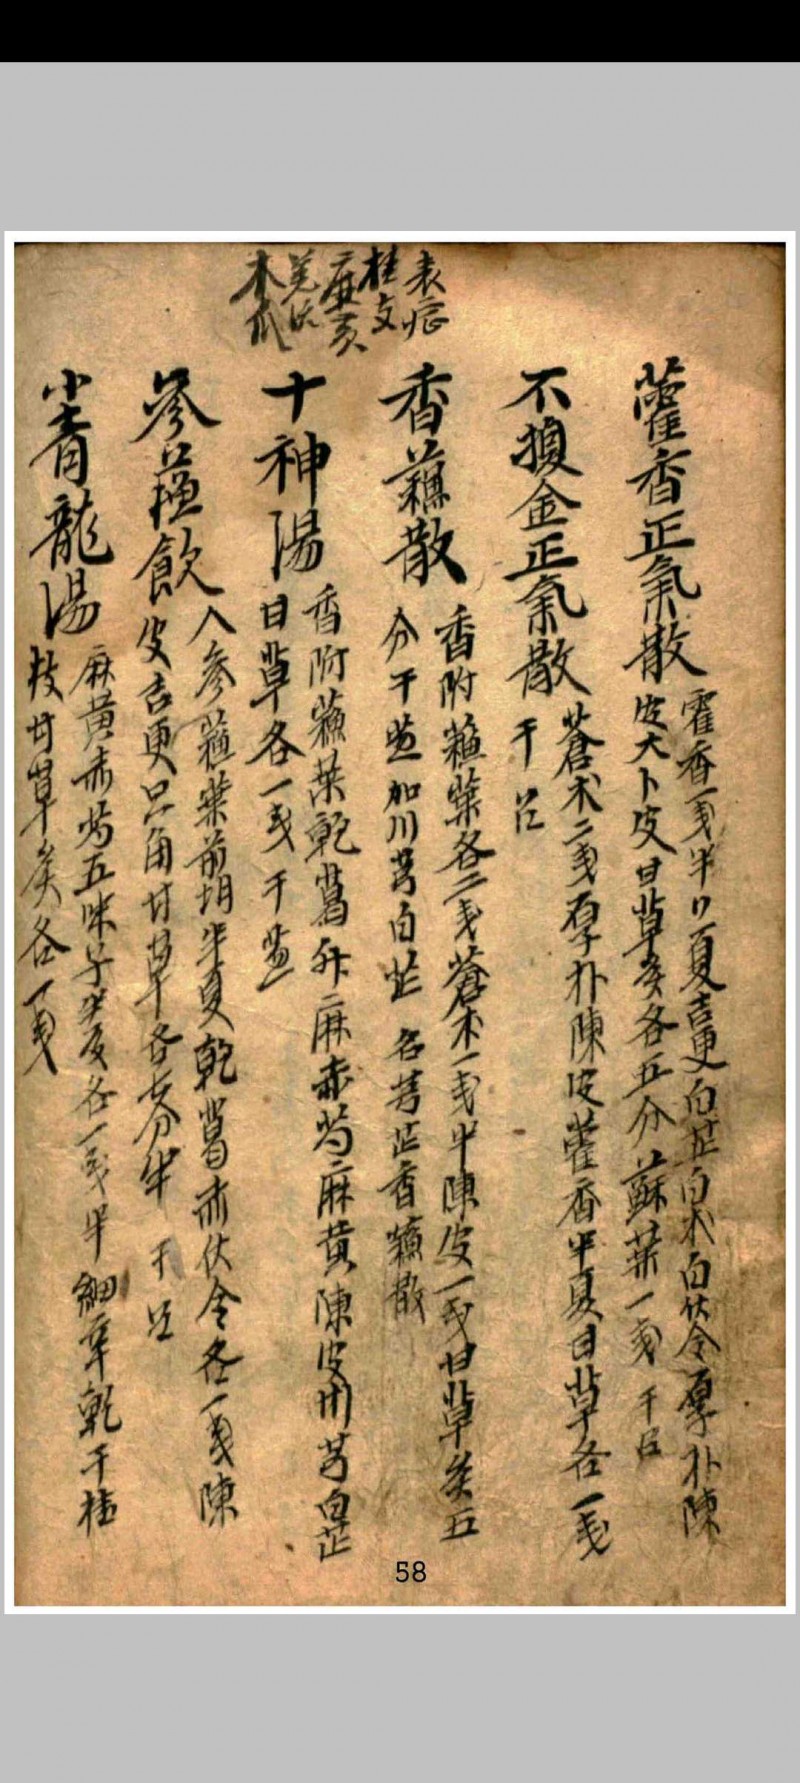 表㾗
桂支
麻黃
羌活
木瓜
藿香正氣散
霍香一戔半口夏吉更白芷白朮白茯苓厚朴陳
皮大卜皮甘草炙各五分蘇葉一戔 干召
不換金正氣散
蒼朮二戔厚朴陳皮藿香半夏甘草各一戔
干召
香蘓散
香附蘓葉各二戔蒼朮一戔半陳皮一戔甘草炙五
分干葱加川芎白芷 名芎芷香蘓散
十神湯
香附蘓葉乾葛升麻赤芍麻黄陳皮川芎白芷
甘草各一戔干葱
參蘓飲
人參蘓葉前胡半夏乾葛赤伏令各一戔陳
皮吉更只角甘草各七分半 干召
小青龍湯
麻黄赤芍五味子半夏各一戔半細辛乾干桂
枝甘草炙各一戔
58